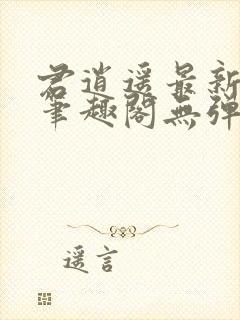 君逍遥最新
笔趣阁無弹
遥言